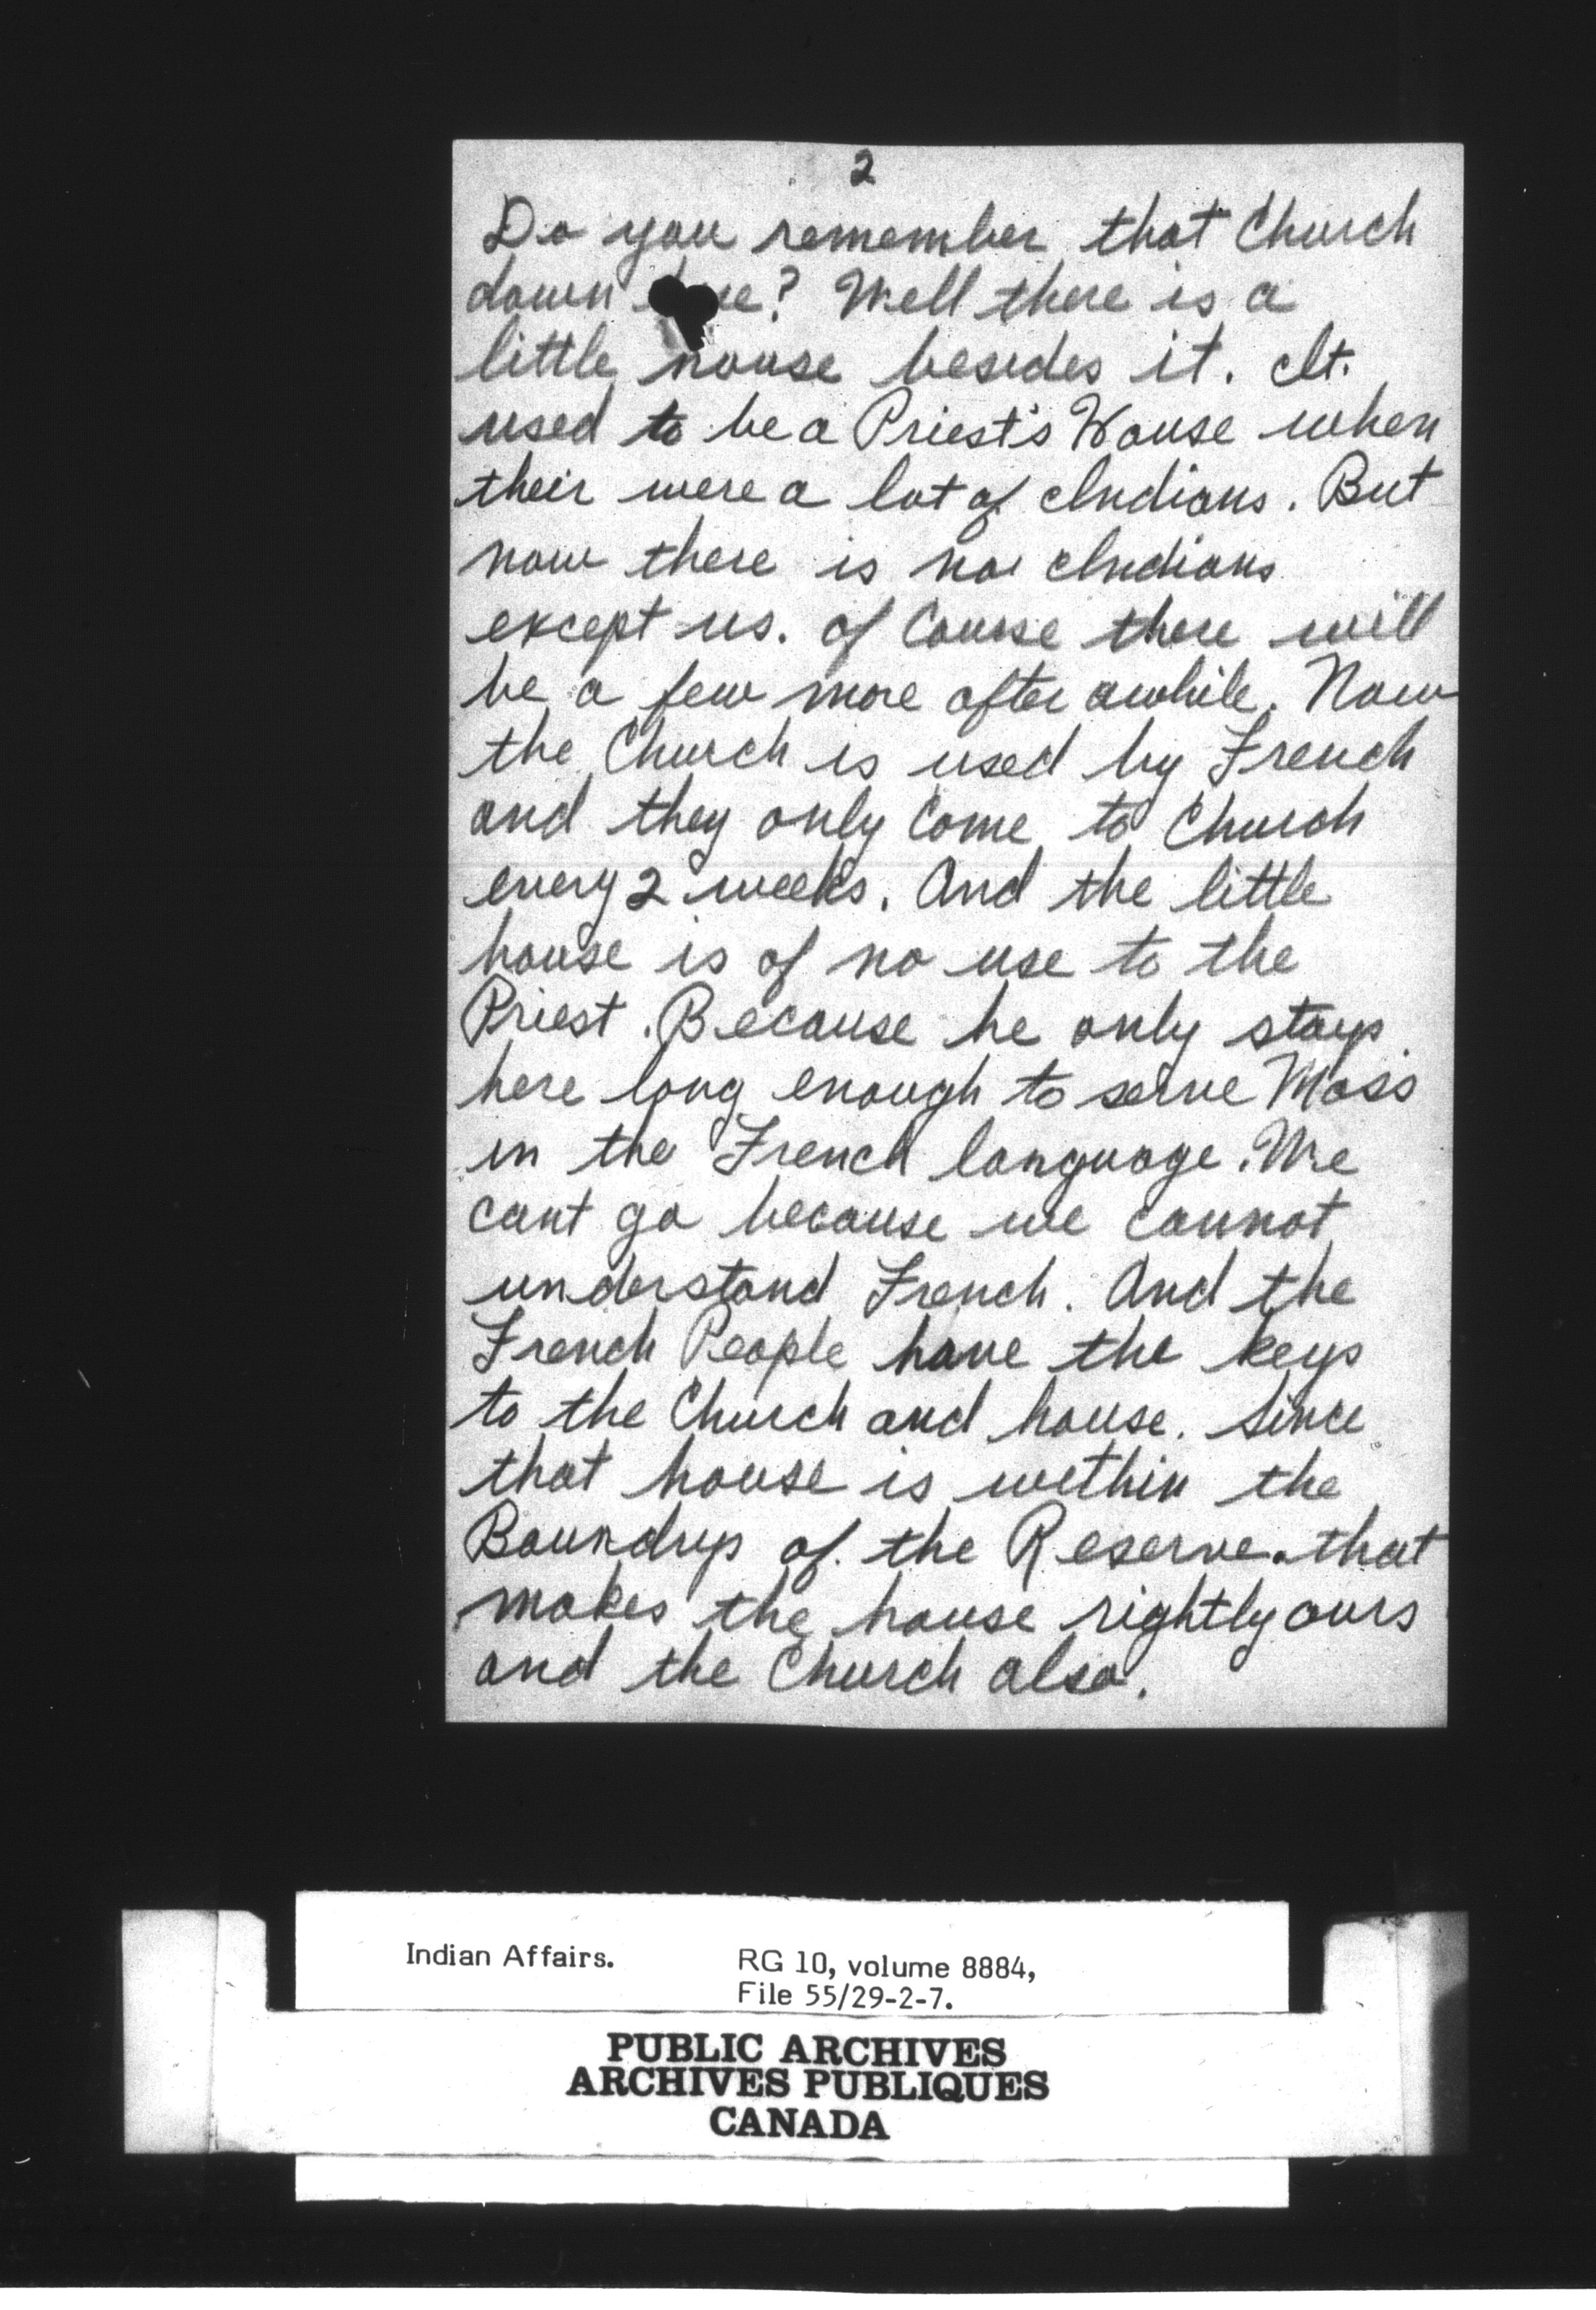 2
Do you remember that Church
down ? Well there is a
little house besides it. It.
used to be a Priest's House when
their were a lot of Indians. But
now there is no Indians
except us. of Course there will
be a few more after awhile. Now
the Church is used by French
and they only Come to Church
every 2 weeks. And the little
house is of no use to the
Priest. Because he only stays
here long enough to serve Mass
in the French language. We
cant go because we cannot
understand French. And the
French People have the keys
to the Church and house. Since
that house is within the
Boundrys of the Reserve. that
makes the house rightly ours
and the Church also.
Indian Affairs. RG 10, volume 8884,
File 55/29-2-7.
PUBLIC ARCHIVES
ARCHIVES PUBLIQUES
CANADA